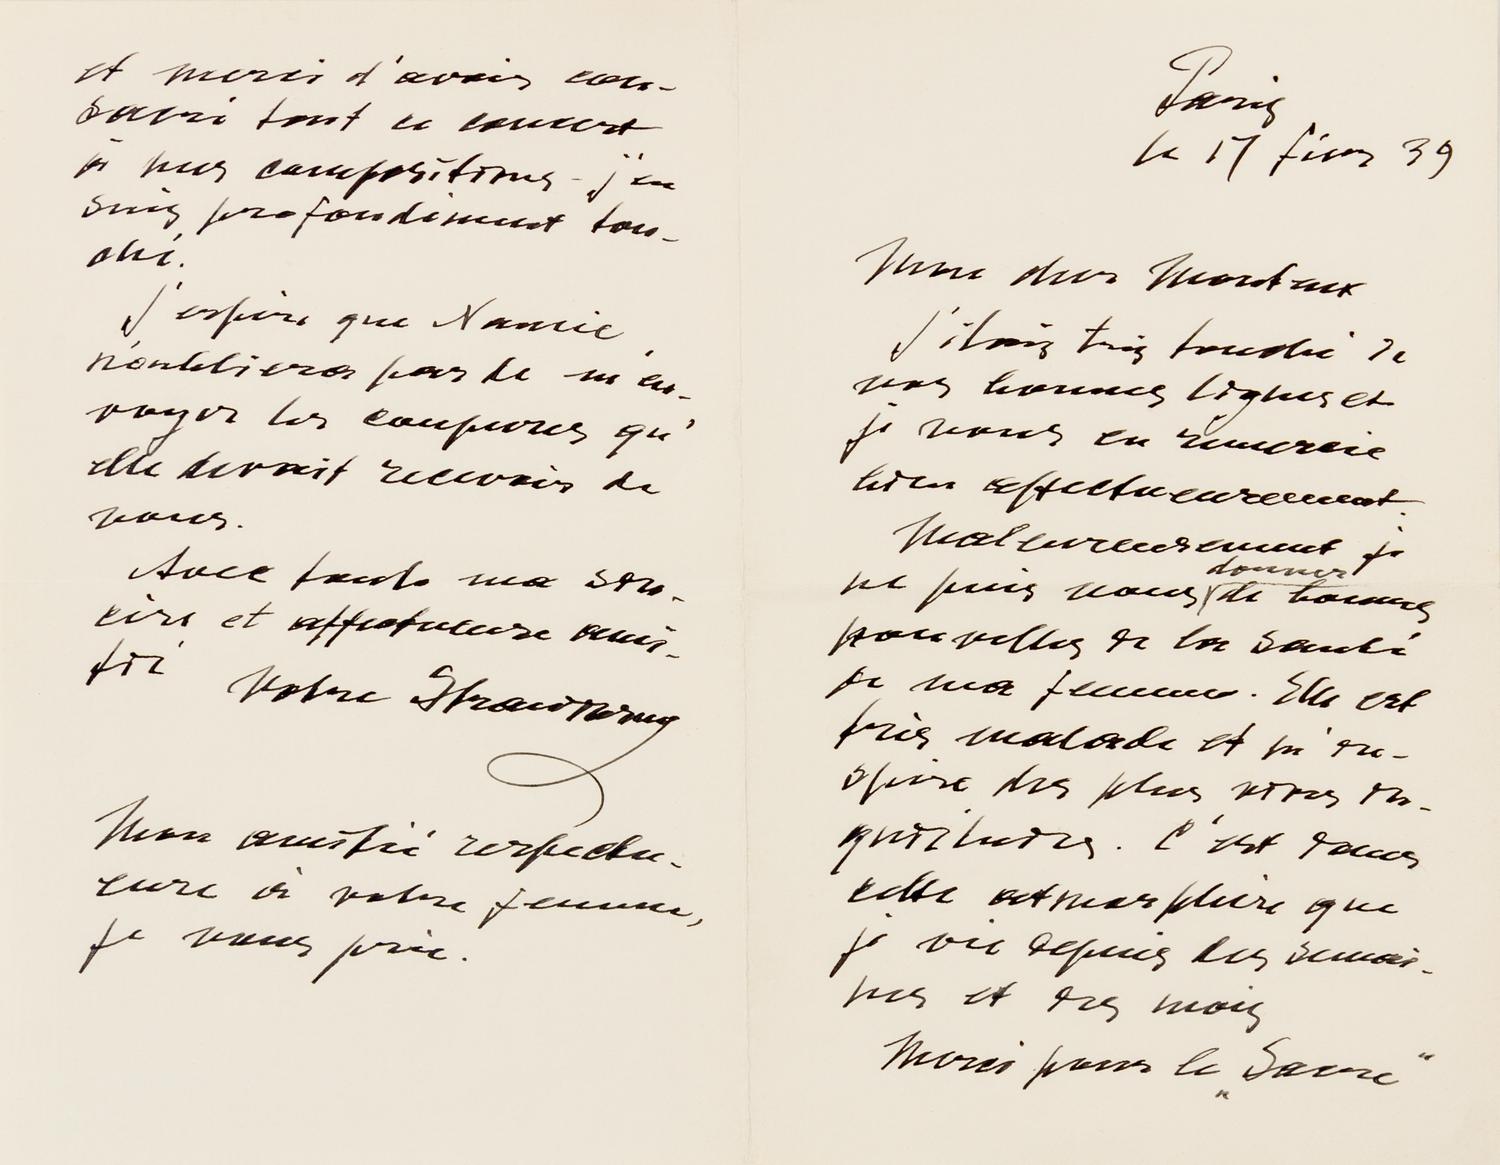 Paris
le 17 févr 39
Mon cher Monteux
J'étais très touché de
vos bonnes lignes et
je vous en remercie
bien affectueusement.
Malheureusement je
ne puis vous donner de bonnes
nouvelles de la santé
de ma femme. Elle est
très malade et m'in-
spire des plus vives in-
quiétudes. C'est dans
cette atmosphère que
je vie depuis des semai-
nes et des mois
Merci pour le „Sacre“
et merci d'avoir con-
sacré tout ce concert
à mes compositions - j'en
suis profondément tou-
ché.
J'espère que Nancie
n'oubliera pas de m'en-
voyer les coupures qu'
elle devait recevoir de
vous.
Avec toute ma sin-
cère et affectueuse ami-
tié
Votre Strawinsky
Mon amitié respectu-
euse à votre femme,
je vous prie.